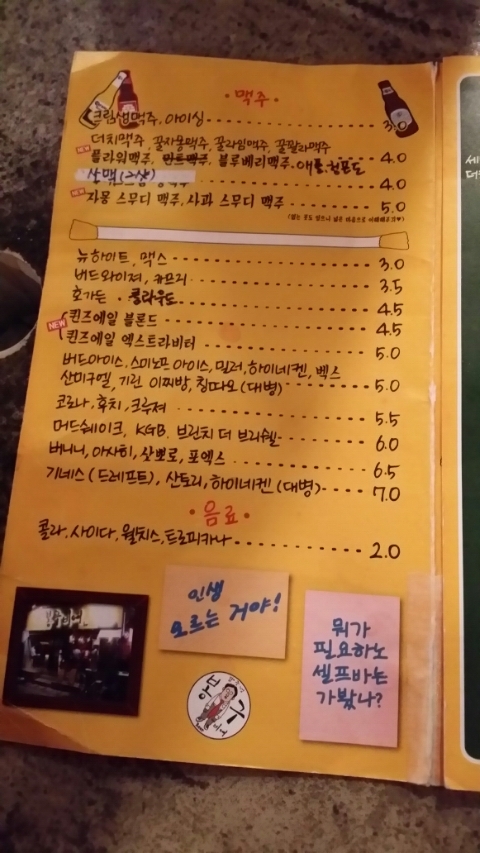 • 맥주 •
크림생맥주, 아이싱 3.0
더치맥주, 꿀자몽맥주, 꿀라임맥주, 꿀깔라맥주
NEW 플라워맥주, 민트맥주, 블루베리맥주, 애플, 천포도 4.0
삼맥(2상) 4.0
NEW 자몽 스무디 맥주, 사과 스무디 맥주 5.0
뉴하이트, 맥스 3.0
버드와이져, 카프리 3.5
호가든 • 클라우드 4.5
NEW 퀸즈에일 블론드 4.5
퀸즈에일 엑스트라비터 5.0
버드아이스, 스미노프 아이스, 밀러, 하이네켄, 벡스
산미구엘, 기린 이찌방, 칭따오 (대병) 5.0
코로나, 후치, 크루져 5.5
머드쉐이크, KGB, 브런치 더 브리쉘 6.0
버니니, 아사히, 삿뽀로, 포엑스 6.5
기네스 (드래프트), 산토리, 하이네켄 (대병) 7.0
• 음료 •
콜라, 사이다, 웰치스, 트로피카나 2.0
인생
모르는 거야!
뭐가
필요하노
셀프바는
가봤나?